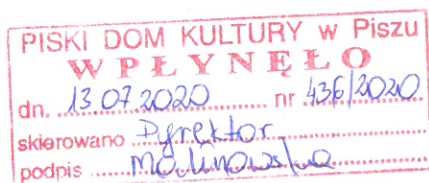 PISKI DOM KULTURY w Piszu
WPŁYNĘŁO
dn. 13.07.2020 nr 436/2020
skierowano Dyrektor
podpis Malinowska